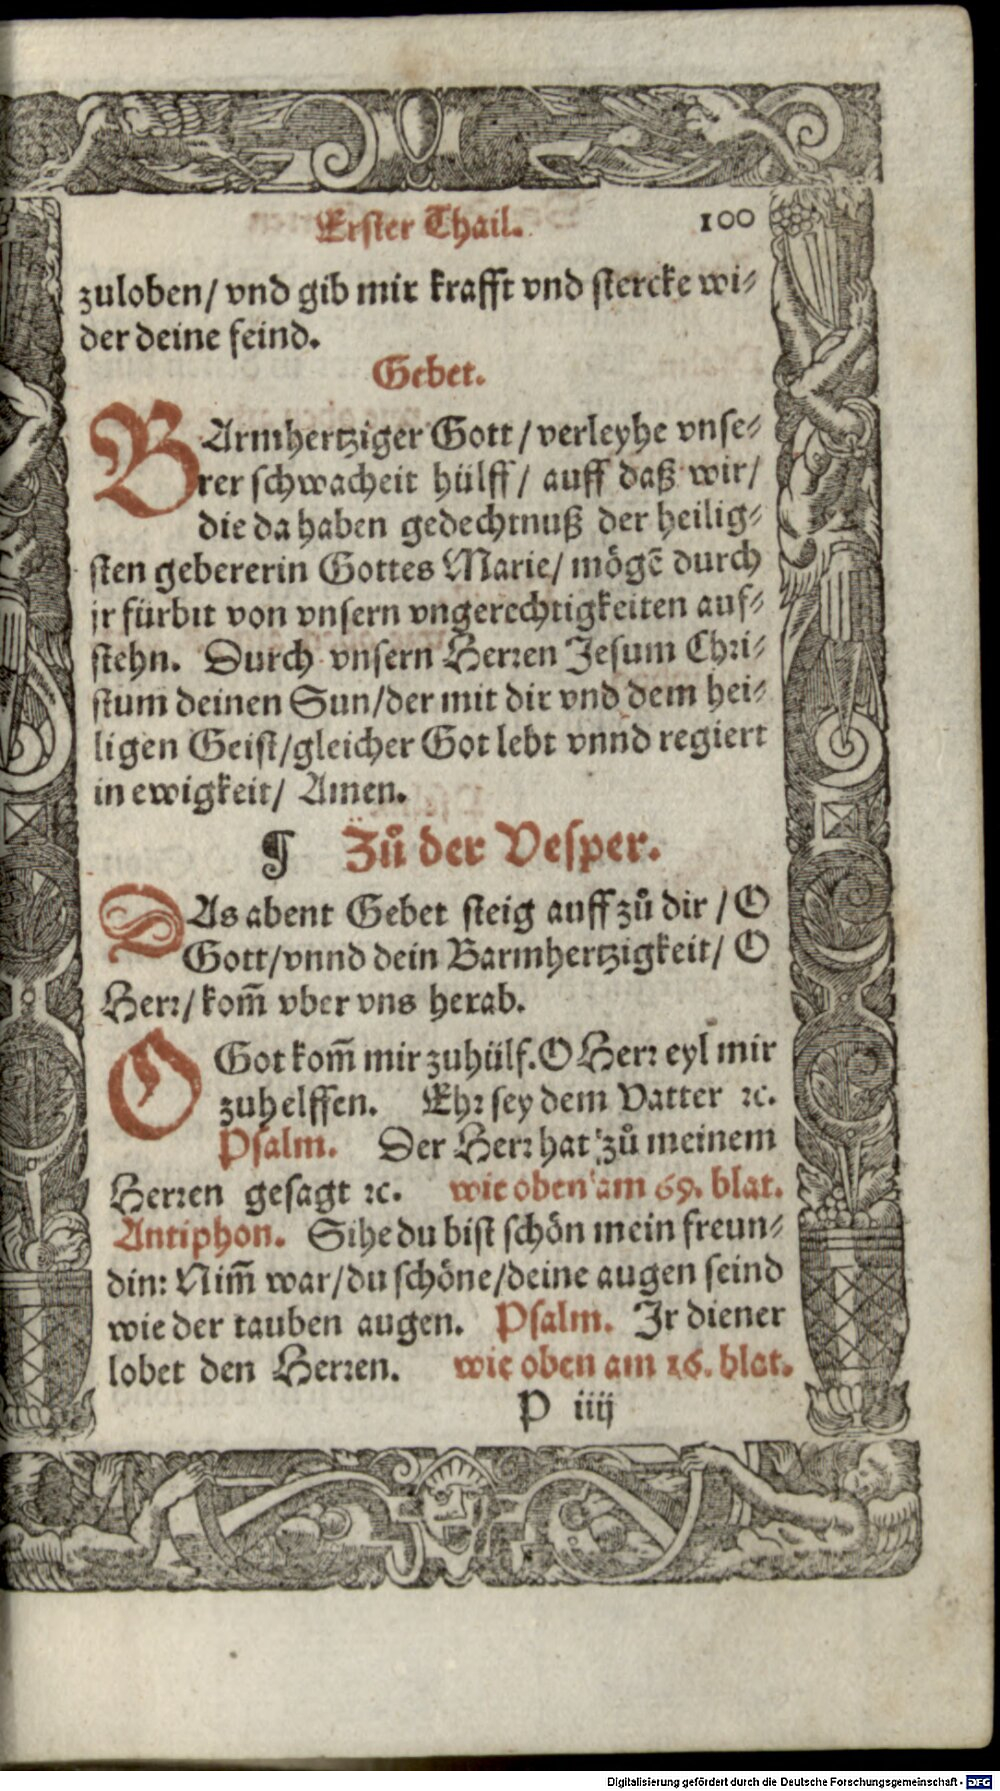 Erster Thail. 100
zuloben/ vnd gib mir krafft vnd stercke wi-
der deine feind.
Gebet.
BArmhertziger Gott / verleyhe vnse-
rer schwacheit hülff / auff daß wir/
die da haben gedechtnuß der heilig-
sten gebererin Gottes Marie/ mögẽ durch
jr fürbit von vnsern vngerechtigkeiten auf-
stehn. Durch vnsern Herren Jesum Chri-
stum deinen Sun/der mit dir vnd dem hei-
ligen Geist/gleicher Got lebt vnnd regiert
in ewigkeit/ Amen.
¶ Zů der Vesper.
DAs abent Gebet steig auff zů dir / O
Gott/vnnd dein Barmhertzigkeit/ O
Herr/ kom̃ vber vns herab.
O Got kom̃ mir zuhülf. O Herr eyl mir
zuhelffen. Ehr sey dem Vatter ꝛc.
Psalm. Der Herr hat zů meinem
Herren gesagt ꝛc. wie oben am 69. blat.
Antiphon. Sihe du bist schön mein freun-
din: Nim̃ war/du schöne/deine augen seind
wie der tauben augen. Psalm. Jr diener
lobet den Herren. wie oben am 16. blat.
P iiij
Digitalisierung gefördert durch die Deutsche Forschungsgemeinschaft - DFG